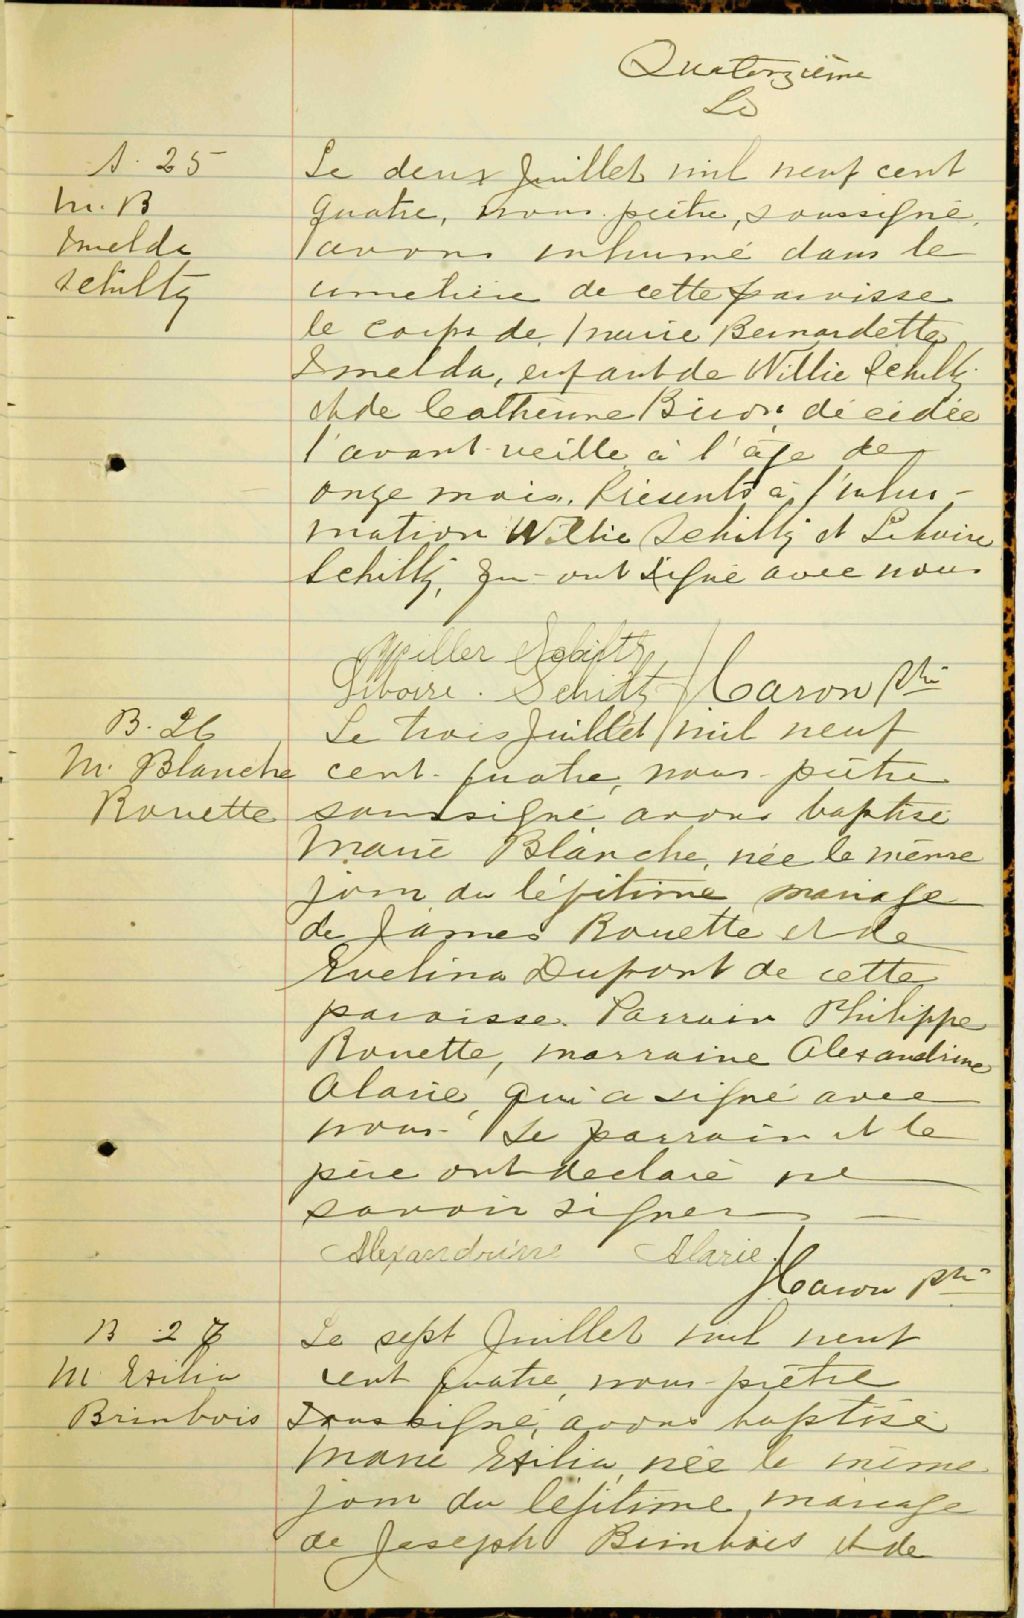 Quatorzième
Le
S. 25
M. B
Imelda
Schiltz
Le deux Juillet mil neuf cent
quatre, nous prêtre, soussigné,
avons inhumé dans le
cimetière de cette paroisse
le corps de Marie Bernardette
Imelda, enfant de Willie Schiltz
et de Catherine Biron, décédée
l'avant-veille à l'âge de
onze mois. Présents à l'inhu-
mation Willie Schiltz et Liboire
Schiltz, qui ont signé avec nous
Willer Schiltz
Liboire. Schiltz Caron ptre
B. 26
M. Blanche
Rouette
Le trois Juillet mil neuf
cent quatre, nous prêtre
soussigné avons baptisé
Marie Blanche, née le même
jour du légitime mariage
de James Rouette et de
Evelina Dupont de cette
paroisse. Parrain Philippe
Rouette, marraine Alexandrine
Alarie, qui a signé avec
nous. Le parrain et le
père ont déclaré ne
savoir signer
Alexandrine Alarie
Caron ptre
B 27
M. Exilia
Brinbois
Le sept Juillet mil neuf
cent quatre, nous prêtre
soussigné, avons baptisé
Marie Exilia, née le même
jour du légitime mariage
de Joseph Brinbois et de